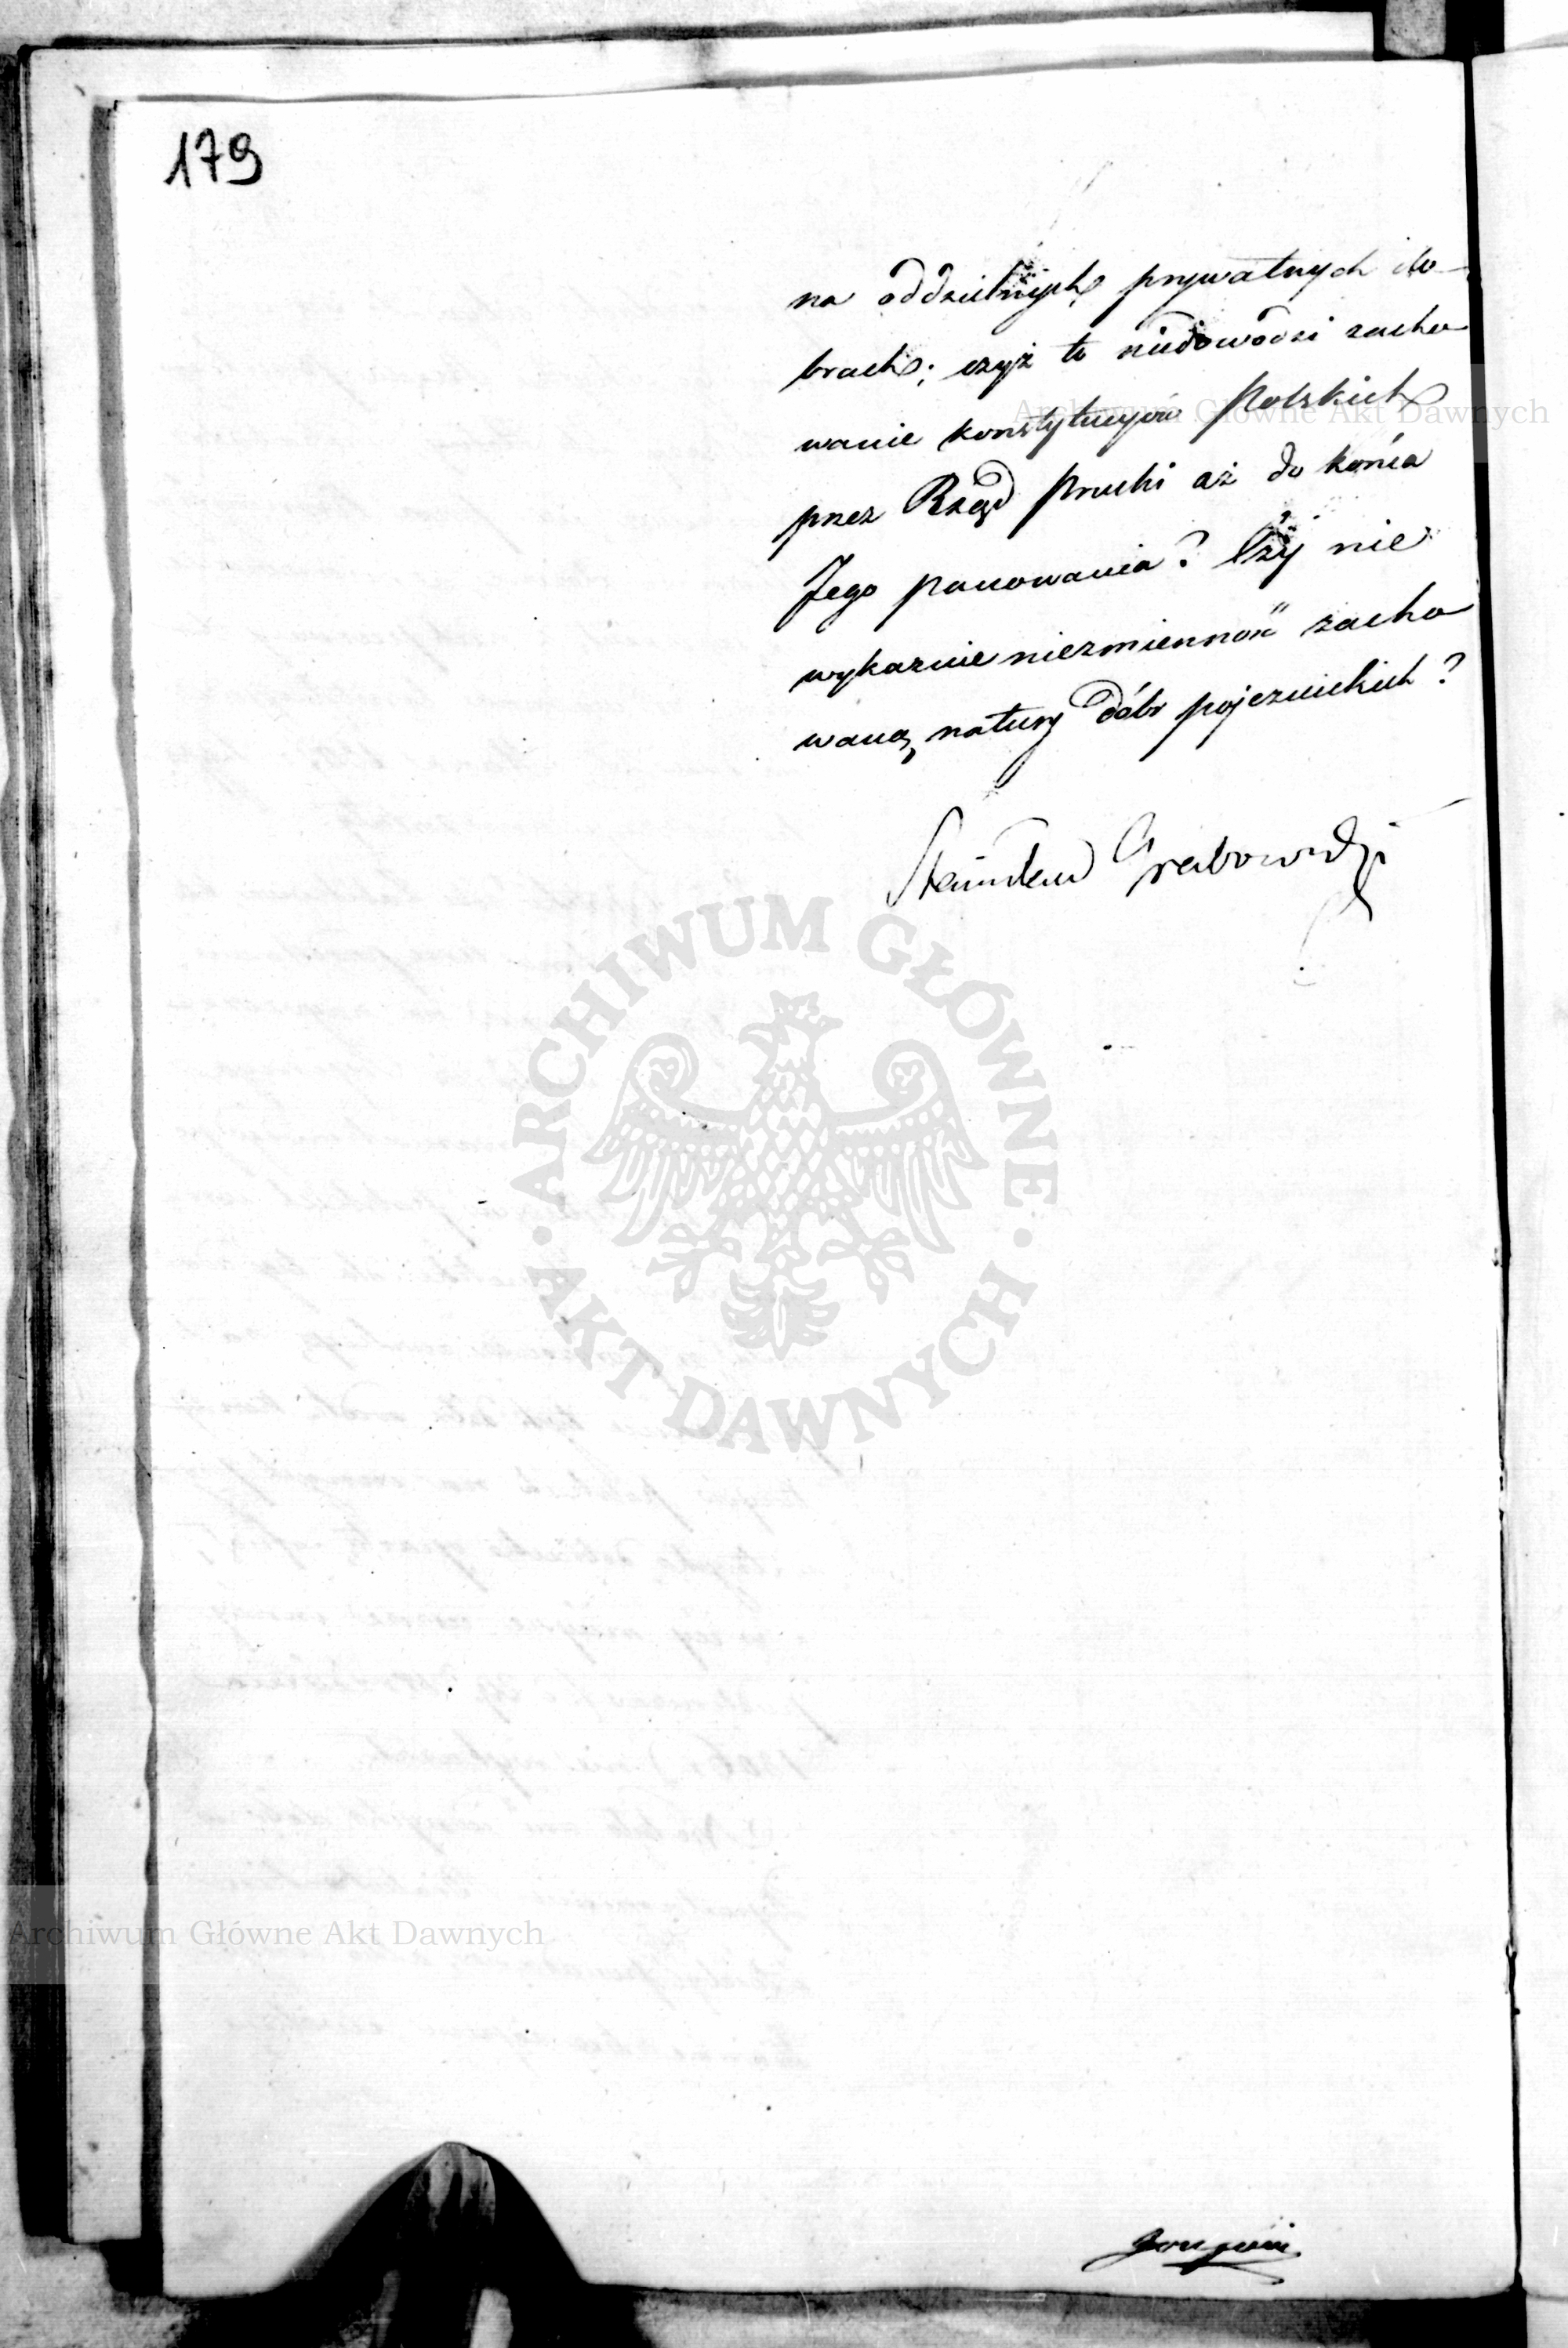 179
na oddzielnych prywatnych do-
brach; czyż to niedowodzi zacho
wanie konstytucyów Polskich
przez Rząd Pruski aż do końca
Jego panowania? Czy nie
wykazuie niezmienność zacho
waną natury dóbr pojezuickich?
Stanisław Grabowski
Archiwum Główne Akt Dawnych
ARCHIWUM GŁÓWNE
AKT DAWNYCH
Archiwum Główne Akt Dawnych